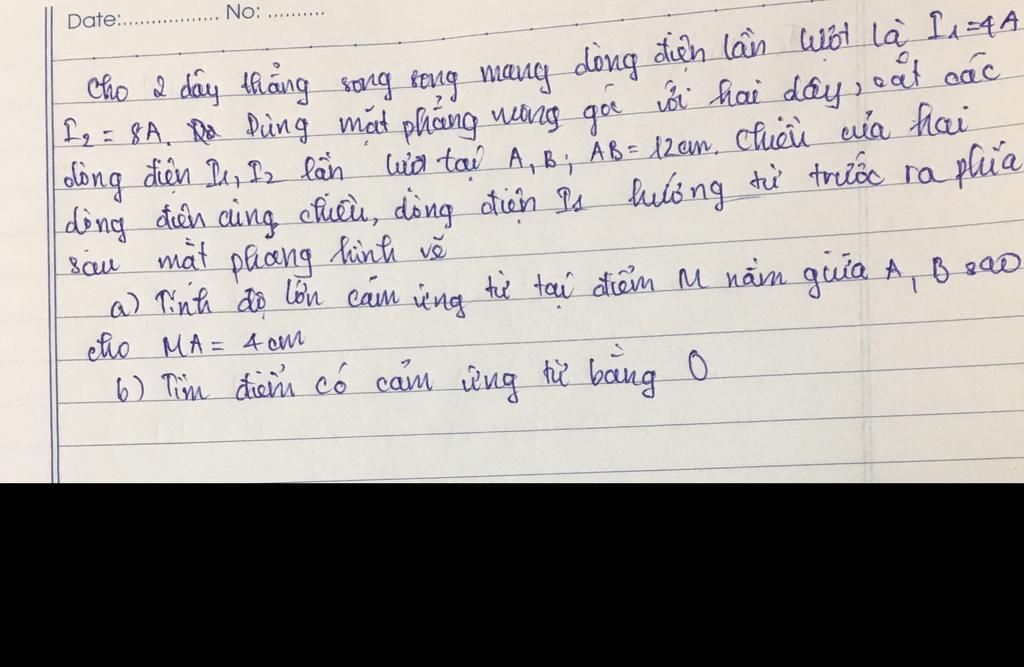 Date:.................. No: ..........
Cho 2 dây thẳng song song mang dòng điện lần lượt là I₁=4A
I₂ = 8A. Dùng mặt phẳng vuông góc với hai dây, cắt các
dòng điện I₁, I₂ lần lượt tại A, B; AB = 12cm. Chiều của hai
dòng điện cùng chiều, dòng điện I₁ hướng từ trước ra phía
sau mặt phẳng hình vẽ
a) Tính độ lớn cảm ứng từ tại điểm M nằm giữa A, B sao
cho MA = 4cm
b) Tìm điểm có cảm ứng từ bằng 0